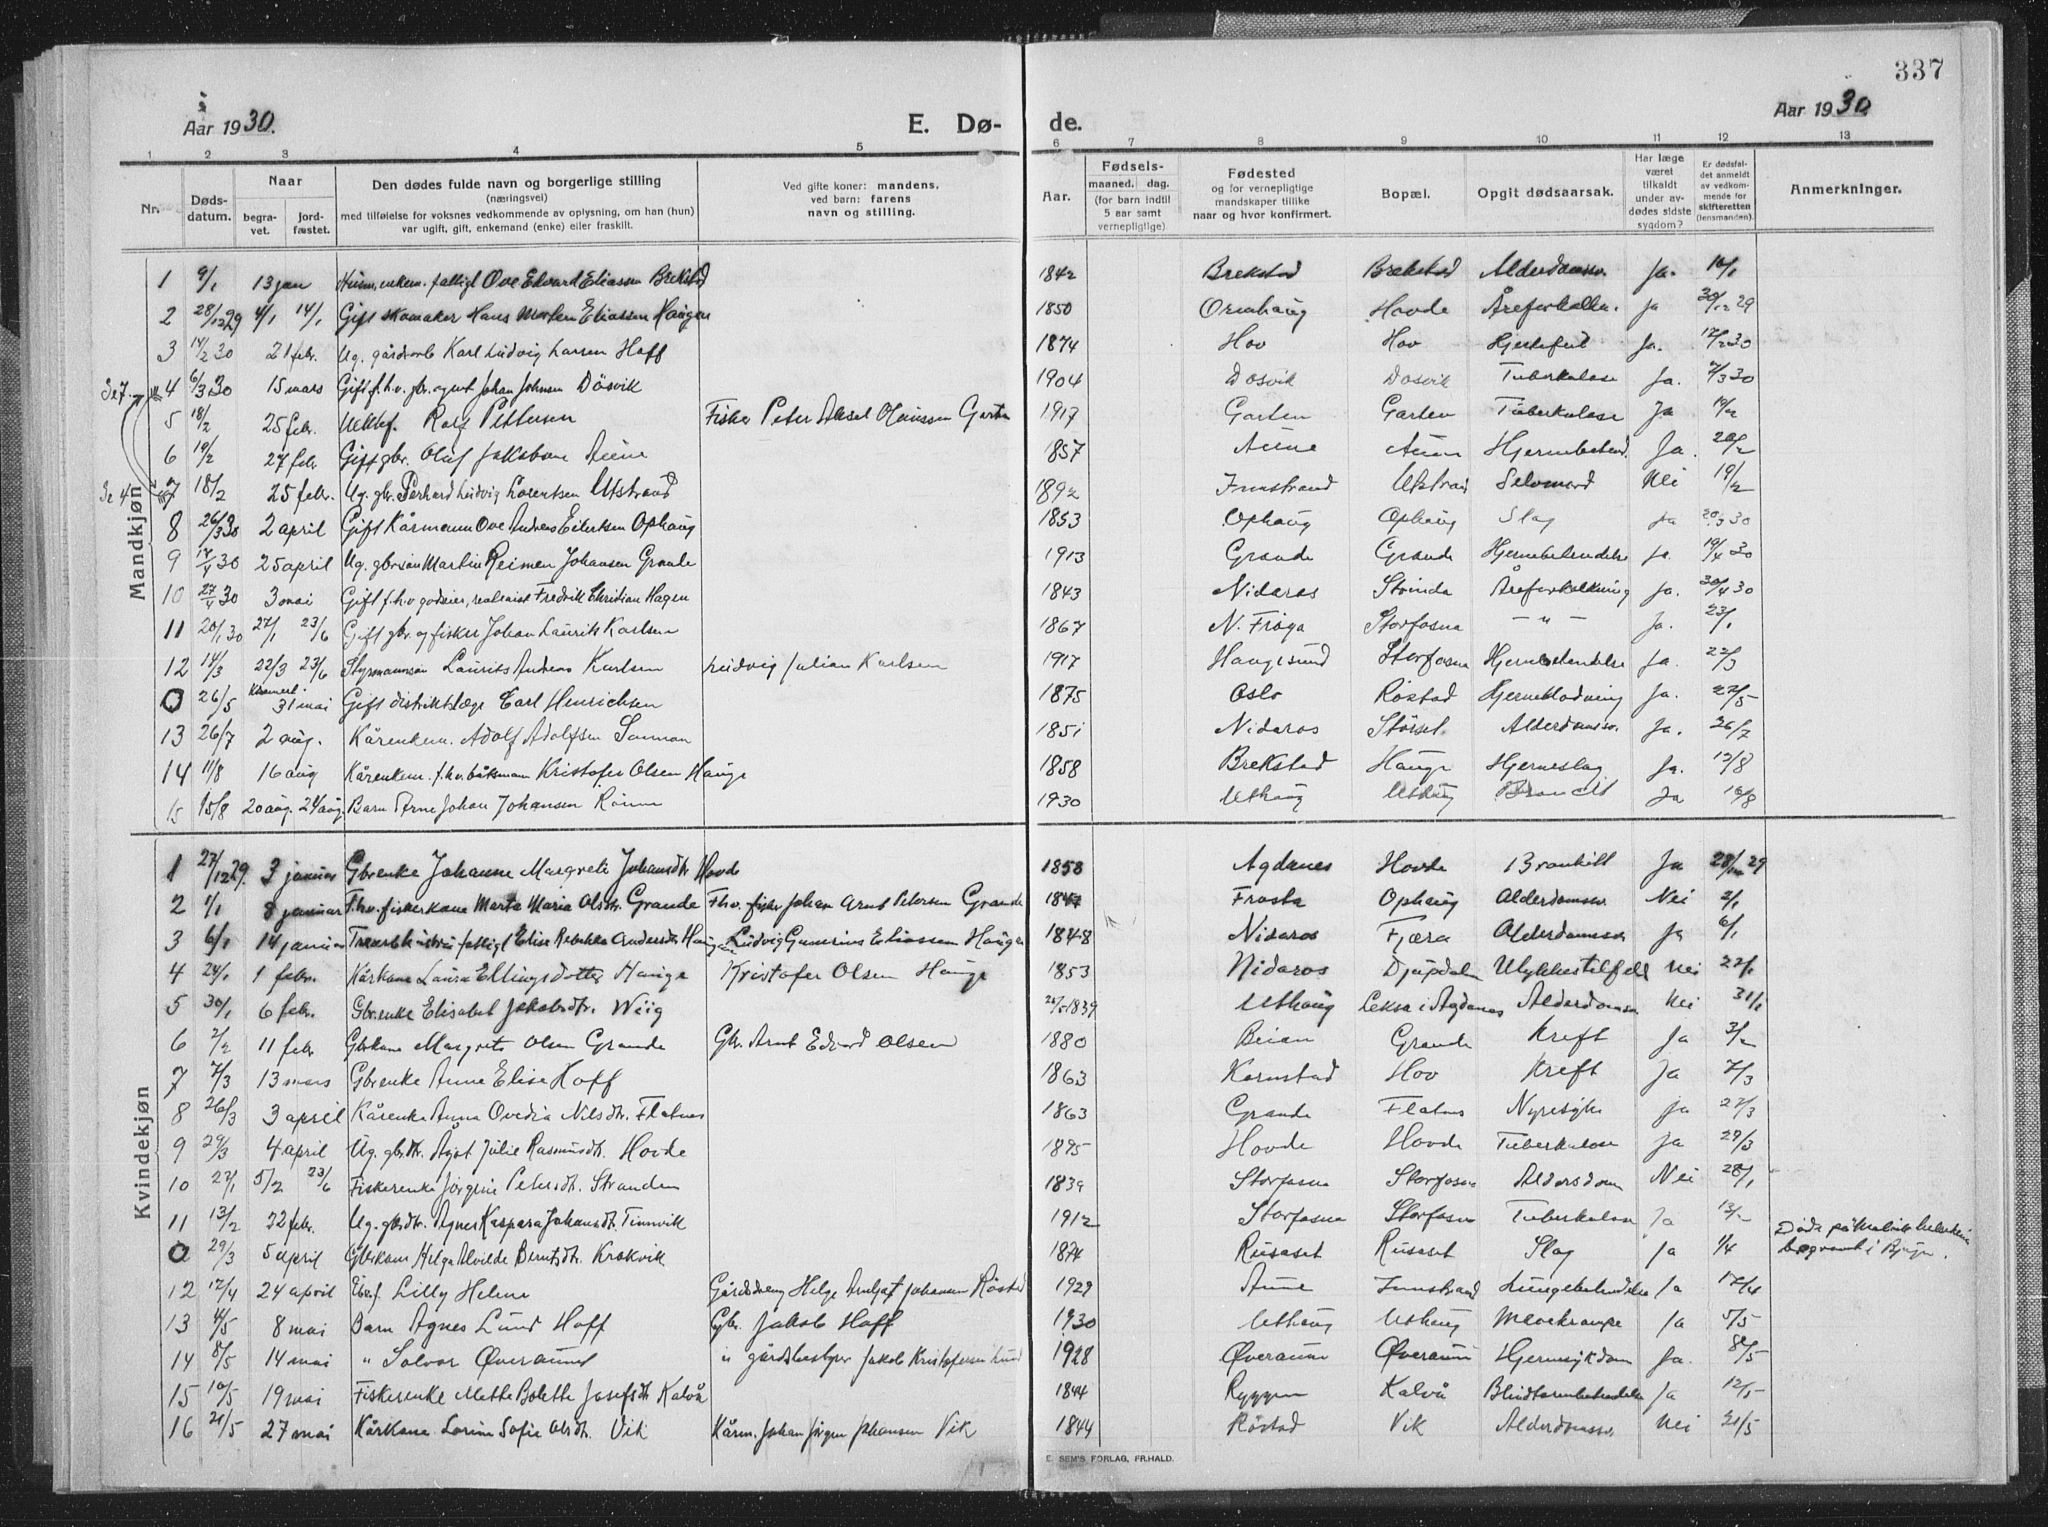 337
Aar 1930.
E. Dø-
de.
Aar 1930
1 2 3 4 5 6 7 8 9 10 11 12 13
Nr.
Døds-
datum.
Naar
begra-
vet.
jord-
fæstet.
Den dødes fulde navn og borgerlige stilling
(næringsvei)
med tilføielse for voksnes vedkommende av oplysning, om han (hun)
var ugift, gift, enkemand (enke) eller fraskilt.
Ved gifte koner: mandens,
ved barn: farens
navn og stilling.
Aar.
Fødsels-
maaned. dag.
(for barn indtil
5 aar samt
vernepligtige)
Fødested
og for vernepligtige
mandskaper tillike
naar og hvor konfirmert.
Bopæl.
Opgit dødsaarsak.
Har læge
været
tilkaldt
under av-
dødes sidste
sygdom?
Er dødsfal-
det anmeldt
av vedkom-
mende for
skifteretten
(lensmanden).
Anmerkninger.
Mandkjøn
1 9/1 13 jan Husm.enkem. fattigl Ove Edvard Eliassen Brekstad 1842 Brekstad Brekstad Alderdomssv. Ja. 10/1
2 28/12 29 4/1 14/1 Gift skomaker Hans Morten Eliassen Haugen 1850 Ornhaug Hovde Åreforkalkn. Ja 30/12 29
3 14/2 30 21 febr. Ug. gårdarb Karl Ludvig Larsen Hoff 1874 Hov Hov Hjertefeil Ja. 17/2 30
Se 7. 4 6/3 30 15 mars Gift f.h.v. gbr. agent Johan Johnsen Dösvik 1904 Dosvik Dosvik Tuberkulose Ja. 7/3 30
5 18/2 25 febr. Rolf Pettersen Fisker Peter Aksel Olaussen Garten 1917 Garten Garten Tuberkulose Ja 19/2
6 19/2 27 febr Gift gbr. Olaf Jakobsen Aune 1857 Aune Aune Hjernebetend. Ja. 20/2
Se 4 7 18/2 25 febr. Ug. gbr. Perhard Ludvig Lorentsen Utstrand 1892 Innstrand Utstrand Selvmord Nei 19/2
8 26/3 30 2 april Gift Kårmann Ove Andreas Eilertsen Ophaug 1853 Ophaug Ophaug Slag Ja 30
9 17/4 30 25 april Ug. gbr.søn Martin Reimer Johansen Grande 1913 Grande Grande Hjernebetendelse Ja. 19/4 30
10 27/4 30 3 mai Gift f.h.v godseier, realenist Fredrik Christian Hagen 1843 Nidaros Strinda Åreforkalkning Ja. 30/4 30
11 20/1 30 27/1 23/6 Gift gbr. og fisker Johan Laurits Karlsen 1867 N. Frøya Storfosna — " — Ja. 23/1
12 14/3 22/3 23/6 Styrmannsøn Laurits Andreas Karlsen Ludvig Julian Karlsen 1917 Haugesund Storfosna Hjernebetendelse Ja. 22/3
0 26/5 Kremert 31 mai Gift distriktslæge Carl Henrichsen 1875 Oslo Röstad Hjerneblødning Ja. 27/5
13 26/7 2 aug. Kårenkem. Adolf Adolfsen 1851 Nidaros Störset. Alderdomssv. Ja. 26/7
14 11/8 16 aug Kårenkem. f.h.v. båtsmann Kristofer Olsen Hauge 1858 Brekstad Hauge Hjerneslag Ja. 12/8
15 15/8 20 aug. 24 aug. Barn Arne Johan Johansen 1930 Uthaug Uthaug Ja 16/8
Kvindekjøn
1 27/12 29. 3 januar Gbrenke Johanne Margrete Johansdtr Hovde 1858 Agdenes Hovde Bronkitt Ja 28/12 29
2 1/1 8 januar F.h.v. fiskerkone Marta Maria Olsdtr. Grande F.h.v. fisker Johan Arnt Petersen Grande Frosta Ophaug Alderdomssv Nei 2/1
3 6/1 14 januar fattigl Elise Rebekka Andersdtr Haugen Ludvig Gunerius Eliassen Haugen 1848 Nidaros Fjæra Alderdomssv Ja 6/1
4 24/1 1 febr. Kårkone Laura Ellingsdotter Hauge Kristofer Olsen Hauge 1853 Nidaros Djupdalen Ulykkestilfell Nei
5 30/1 6 febr. Gbr.enke Elisabet Jakobsdtr. Wiig 1839 Uthaug Leksa i Agdenes Alderdomssv Nei 31/1
6 2/2 11 febr Gbrkone Margrete Olsen Grande Gbr. Arnt Edvard Olsen 1880 Beian Grande Kreft Ja 3/2
7 7/3 13 mars Gbrenke Anne Elise Hoff 1863 Karnstad Hov Kreft Ja 7/3
8 26/3 3 april Kårenke Anna Ovedia Nilsdtr. Flatnes 1863 Grande Flatnes Nyresyke Ja 27/3
9 29/3 4 april Ug. gbrdtr. Agot Julie Rasmusdtr. Hovde 1895 Hovde Hovde Tuberkulose Ja 29/3
10 27/1 5/2 23/6 Fiskerenke Jörgine Petersdtr. Stranden 1839 Storfosna Storfosna Aldersdom Nei 28/1
11 13/2 22 febr. Ug. gbrdtr. Agnes Kaspara Johansdtr. Tinnvik 1912 Storfosna Storfosna Tuberkulose Ja 13/2
0 29/3 5 april Gbrkone Helga Alvilde Berntsdtr. Krakvik 1874 Rusaset Rusaset Slag Ja 1/4 Døde på begravet i Bjugn.
12 12/4 24 april Lilly Helene Gårdsdreng Helge Johansen Röstad 1929 Aune Innstrand Lungebetendelse Ja 17/4
13 4/5 8 mai Barn Agnes Lund Hoff Gbr. Jakob Hoff 1930 Uthaug Uthaug Mavekrampe Ja 5/5
14 8/5 14 mai " Solvor Øveraune " gårdsbestyrer Jakob Kristofersen Lund 1928 Øveraune Øveraune Hjernesykdom Ja. 8/5
15 10/5 19 mai Fiskerenke Mette Bolette Josefsdtr Kalvå 1844 Ryggen Kalvå Blindtarmbetendelse Ja 12/5
16 21/5 27 mai Kårkone Lorine Sofie Olsdtr. Vik Kårm. Johan Jörgen Johansen Vik 1844 Röstad Vik Alderdomssv Nei 21/5
E. SEM'S FORLAG, FR.HALD.